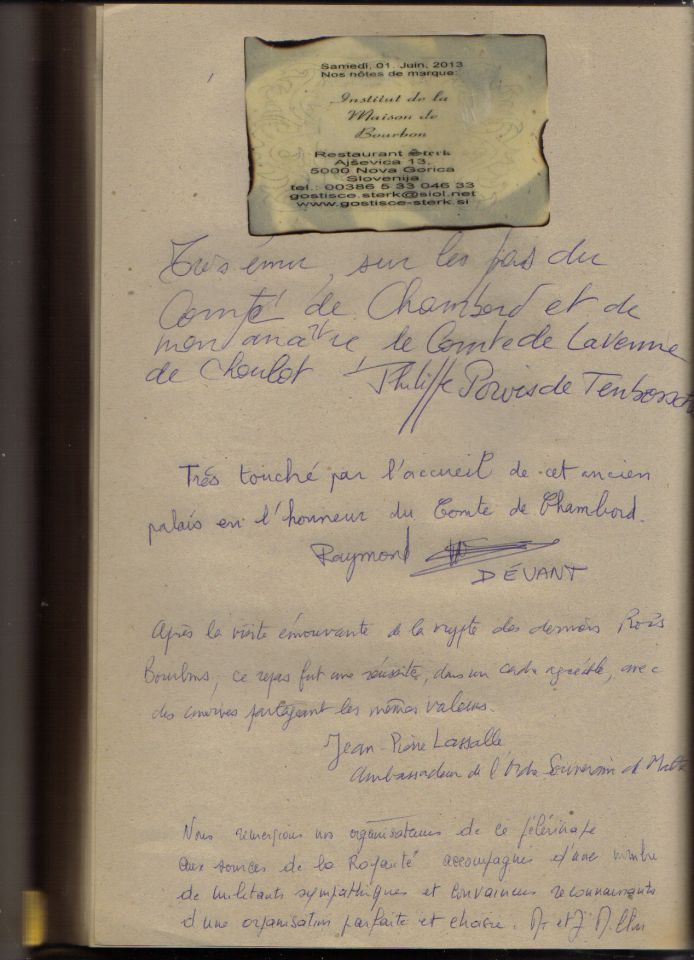 Samedi, 01. Juin, 2013
Nos hôtes de marque:
Institut de la
Maison de
Bourbon
Restaurant Šterk
Ajševica 13,
5000 Nova Gorica
Slovenija
tel.: 00386 5 33 046 33
gostisce.sterk@siol.net
www.gostisce-sterk.si
Très ému, sur les pas du
Comte de Chambord et de
mon ancêtre le Comte de Lavenne
de Choulot Philippe de
Très touché par l'accueil de cet ancien
palais en l'honneur du Comte de Chambord.
Raymond
DEVANT
Après la visite émouvante de la crypte des derniers Rois
Bourbons, ce repas fut une réussite, dans un cadre agréable, avec
des convives partageant les mêmes valeurs.
Jean-Pierre Lassalle
Ambassadeur de l'Ordre Souverain de Malte
Nous remercions nos organisateurs de ce pélérinage
aux sources de la Royauté accompagnés d'une
de militants sympathiques et convaincus reconnaissants
d'une organisation parfaite et